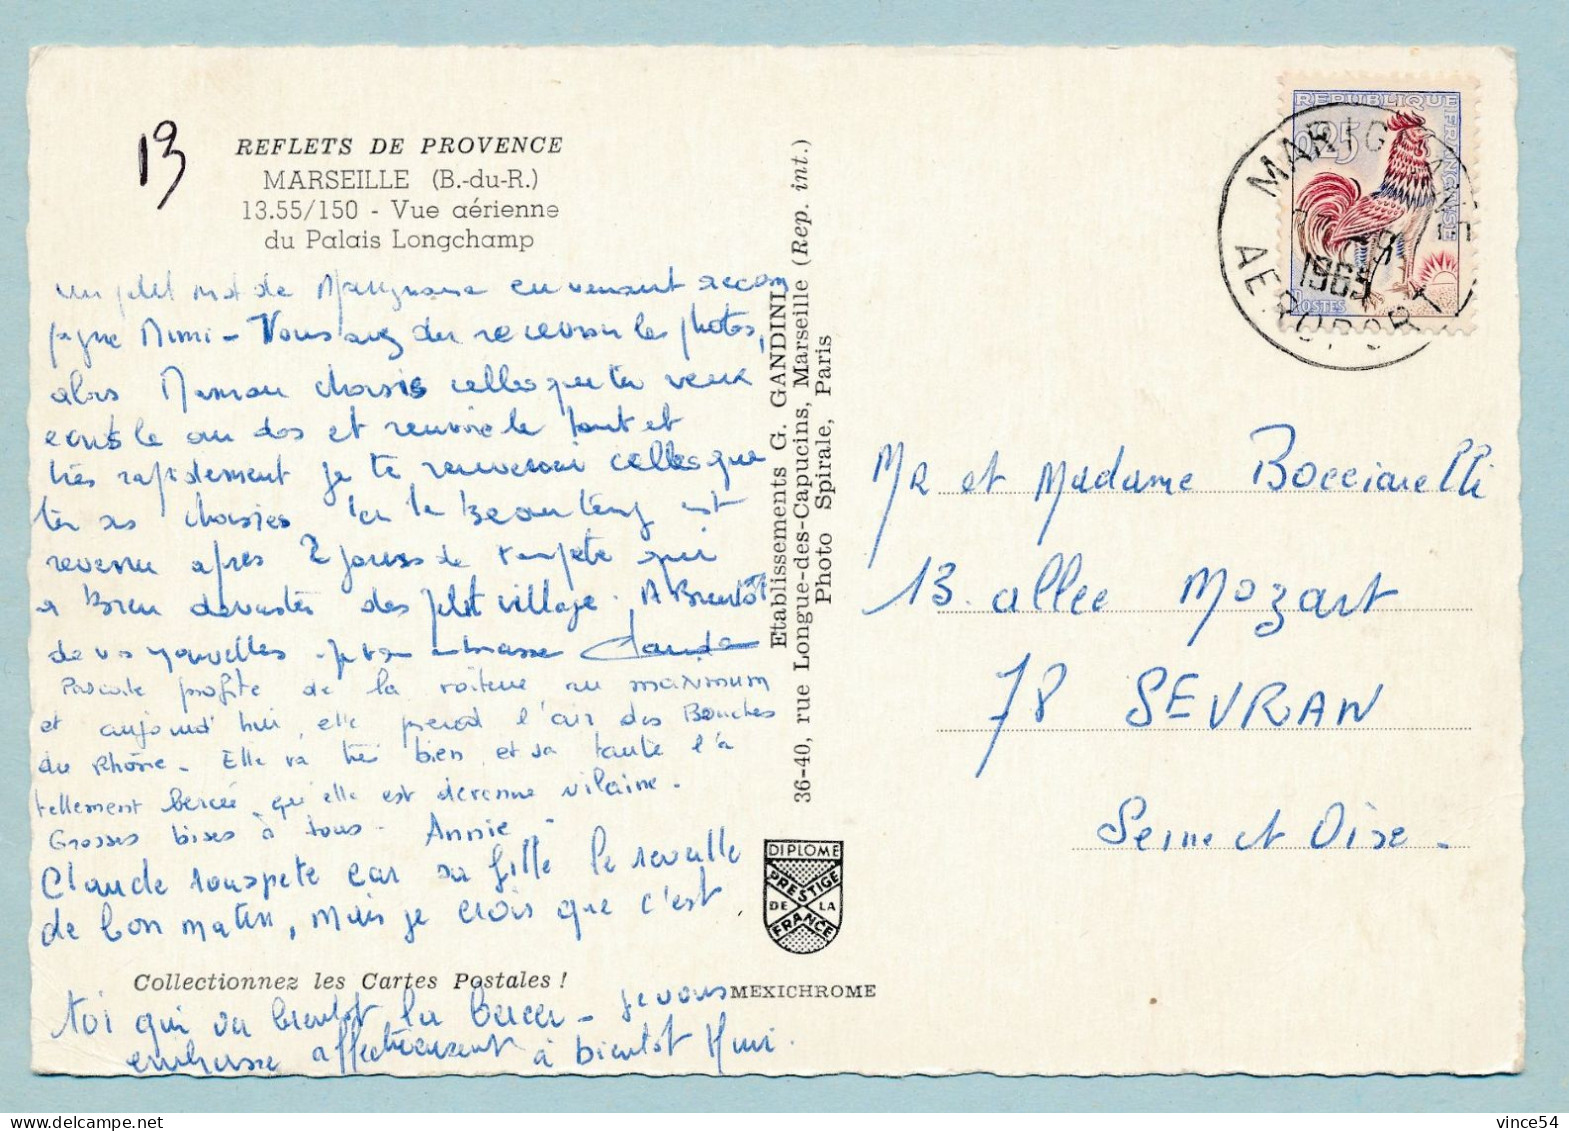 13
REFLETS DE PROVENCE
MARSEILLE (B.-du-R.)
13.55/150 - Vue aérienne
du Palais Longchamp
un petit mot de Marignane en venant accom
pagne Mimi - Vous avez du recevoir les photos,
alors Maman choisis celles que tu veux
écris le au dos et renvoie le tout et
très rapidement je te renverrai celles que
tu as choisies Ici le Beau temps est
revenu après 2 jours de tempête qui
a Bien dévasté des petit village. A Bientôt
de vos nouvelles - je vous embrasse Claude
Pascale profite de la voiture au maximum
et aujourd'hui, elle prend l'air des Bouches
du Rhône - Elle va très bien et sa tante l'a
tellement bercée qu'elle est devenue vilaine -
Grosses bises à tous - Annie -
Claude rouspete car sa fille le reveille
de bon matin, mais je crois que c'est
Collectionnez les Cartes Postales !
toi qui va bientot la bercer - je vous
embrasse affectueusement à bientot Mimi.
Etablissements G. GANDINI
36-40, rue Longue-des-Capucins, Marseille (Rep. int.)
Photo Spirale, Paris
DIPLOME
PRESTIGE
DE LA
FRANCE
MEXICHROME
REPUBLIQUE FRANÇAISE
0,25
POSTES
MARIGNANE
1965
AEROPORT
Mr et Madame Bocciarelli
13. allée Mozart
78 SEVRAN
Seine et Oise -
vince54